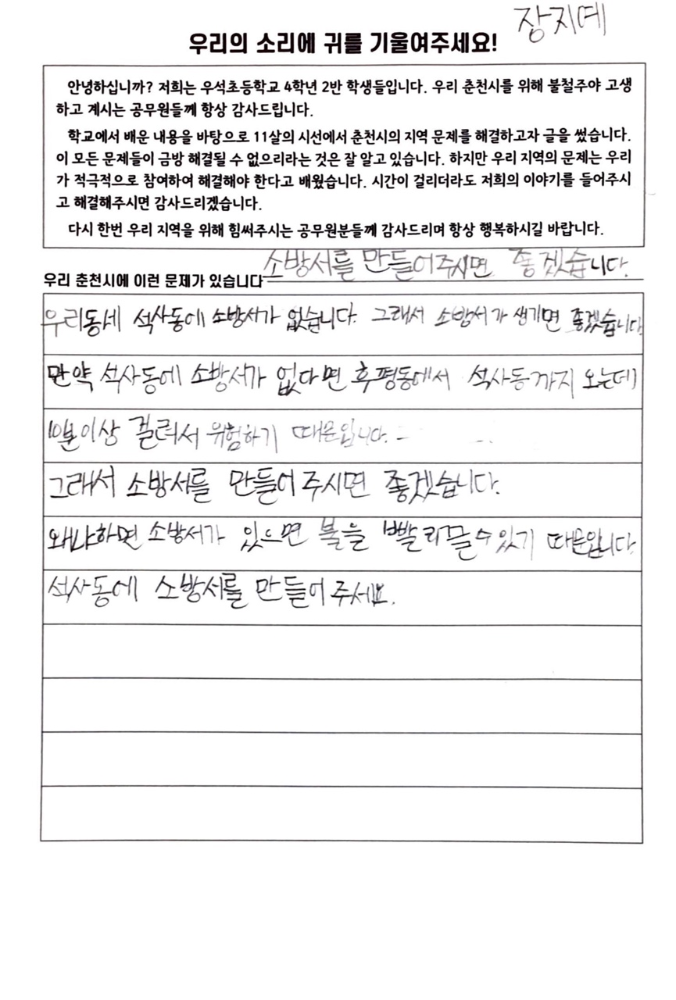 장지예
우리의 소리에 귀를 기울여주세요!
안녕하십니까? 저희는 우석초등학교 4학년 2반 학생들입니다. 우리 춘천시를 위해 불철주야 고생
하고 계시는 공무원들께 항상 감사드립니다.
학교에서 배운 내용을 바탕으로 11살의 시선에서 춘천시의 지역 문제를 해결하고자 글을 썼습니다.
이 모든 문제들이 금방 해결될 수 없으리라는 것은 잘 알고 있습니다. 하지만 우리 지역의 문제는 우리
가 적극적으로 참여하여 해결해야 한다고 배웠습니다. 시간이 걸리더라도 저희의 이야기를 들어주시
고 해결해주시면 감사드리겠습니다.
다시 한번 우리 지역을 위해 힘써주시는 공무원분들께 감사드리며 항상 행복하시길 바랍니다.
우리 춘천시에 이런 문제가 있습니다 소방서를 만들어주시면 좋겠습니다.
우리동네 석사동에 소방서가 없습니다. 그래서 소방서가 생기면 좋겠습니다
만약 석사동에 소방서가 없다면 후평동에서 석사동까지 오는데
10분이상 걸려서 위험하기 때문입니다.
그래서 소방서를 만들어 주시면 좋겠습니다.
왜냐하면 소방서가 있으면 불을 빨리끌수있기 때문입니다.
석사동에 소방서를 만들어 주세요.